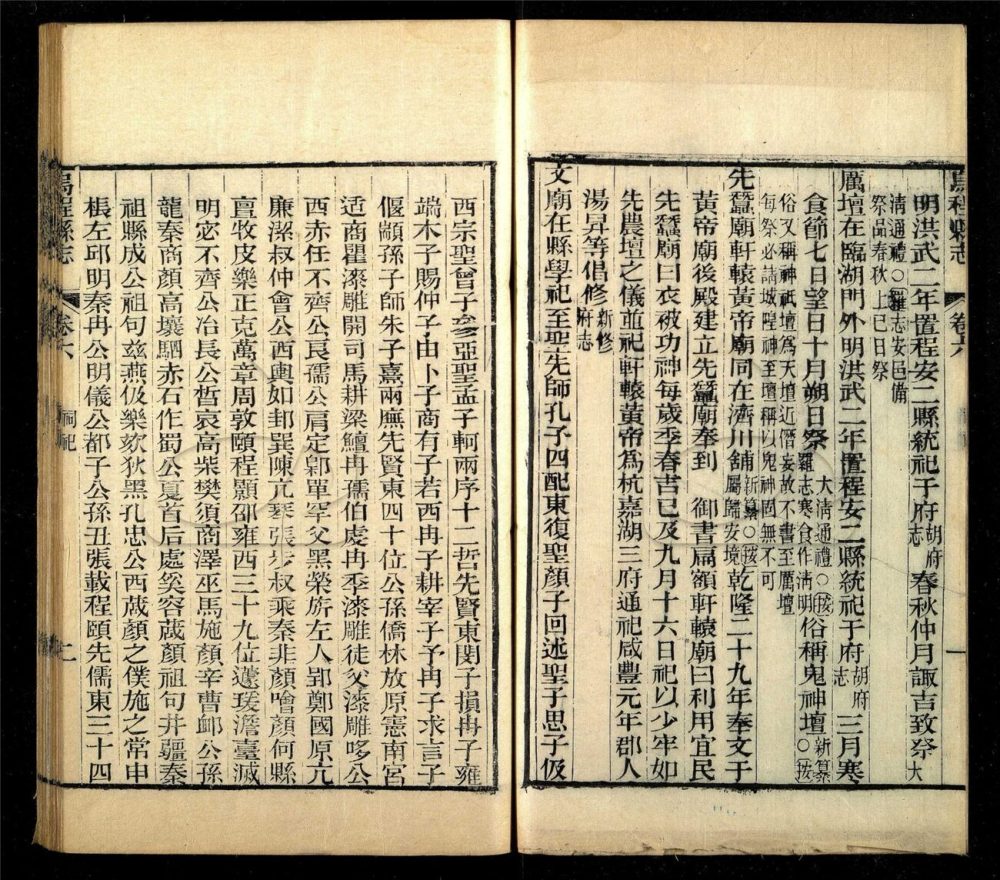 烏程縣志 卷六 一
明洪武二年置程安二縣統祀于府胡府志春秋仲月諏吉致祭大
清通禮○羅志安邑備
祭品春秋上巳日祭
厲壇在臨湖門外明洪武二年置程安二縣統祀于府胡府志三月寒
食節七日望日十月朔日祭大清通禮○按
羅志寒食作清明俗稱鬼神壇新纂○按
俗又稱神祇壇爲天壇近僭妄故不書至厲壇
每祭必請城隍神至壇稱以鬼神固無不可
先蠶廟軒轅黃帝廟同在濟川舖新纂○按
屬歸安境乾隆二十九年奉文于
黃帝廟後殿建立先蠶廟奉到 御書扁額軒轅廟曰利用宜民
先蠶廟曰衣被功神每歲季春吉巳及九月十六日祀以少牢如
先農壇之儀並祀軒轅黃帝爲杭嘉湖三府通祀咸豐元年郡人
湯昇等倡修新修府志
文廟在縣學祀至聖先師孔子四配東復聖顏子回述聖子思子伋
西宗聖曾子參亞聖孟子軻兩序十二哲先賢東閔子損冉子雍
端木子賜仲子由卜子商有子若西冉子耕宰子予冉子求言子
偃顓孫子師朱子熹兩廡先賢東四十位公孫僑林放原憲南宮
适商瞿漆雕開司馬耕梁鱣冉孺伯虔冉季漆雕徒父漆雕哆公
西赤任不齊公良孺公肩定鄡單罕父黑榮旂左人郢鄭國原亢
廉潔叔仲會公西輿如邽巽陳亢琴張步叔乘秦非顏噲顏何縣
亶牧皮樂正克萬章周敦頤程顥邵雍西三十九位蘧瑗澹臺滅
明宓不齊公冶長公晳哀高柴樊須商澤巫馬施顏辛曹卹公孫
龍秦商顏高壤駟赤石作蜀公夏首后處奚容蒧顏祖句井疆秦
祖縣成公祖句茲燕伋樂欬狄黑孔忠公西蒧顏之僕施之常申
棖左邱明秦冉公明儀公都子公孫丑張載程頤先儒東三十四
烏程縣志 卷六 祠祀 二